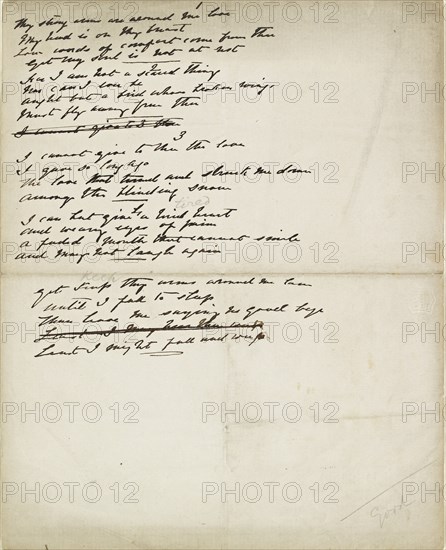 1
Thy strong arms are around me love
My head is on thy breast
Low words of comfort come from thee
yet my soul is not at rest
For I am but a scared thing
Nor can I ever be
aught but a bird whose broken wing
Must fly away from thee
I cannot give to thee
3
I cannot give to thee the love
I gave so long ago
The love that turned and struck me down
amongst the blinding snow
4
tired
I can but give a tired heart
and weary eyes of pain
a faded mouth that cannot smile
and may not laugh again
keep
yet keep thy arms around me love
until I fall to sleep
then leave me saying no good bye
Least I might fall and weep
PHOTO 12
PHOTO 12
PHOTO 12
PHOTO 12
PHOTO 12
PHOTO 12